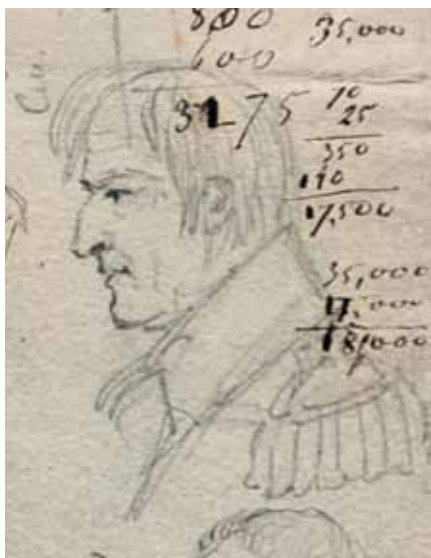 800
600
35,000
3175
70
25
350
140
17,500
35,000
17,000
18,000